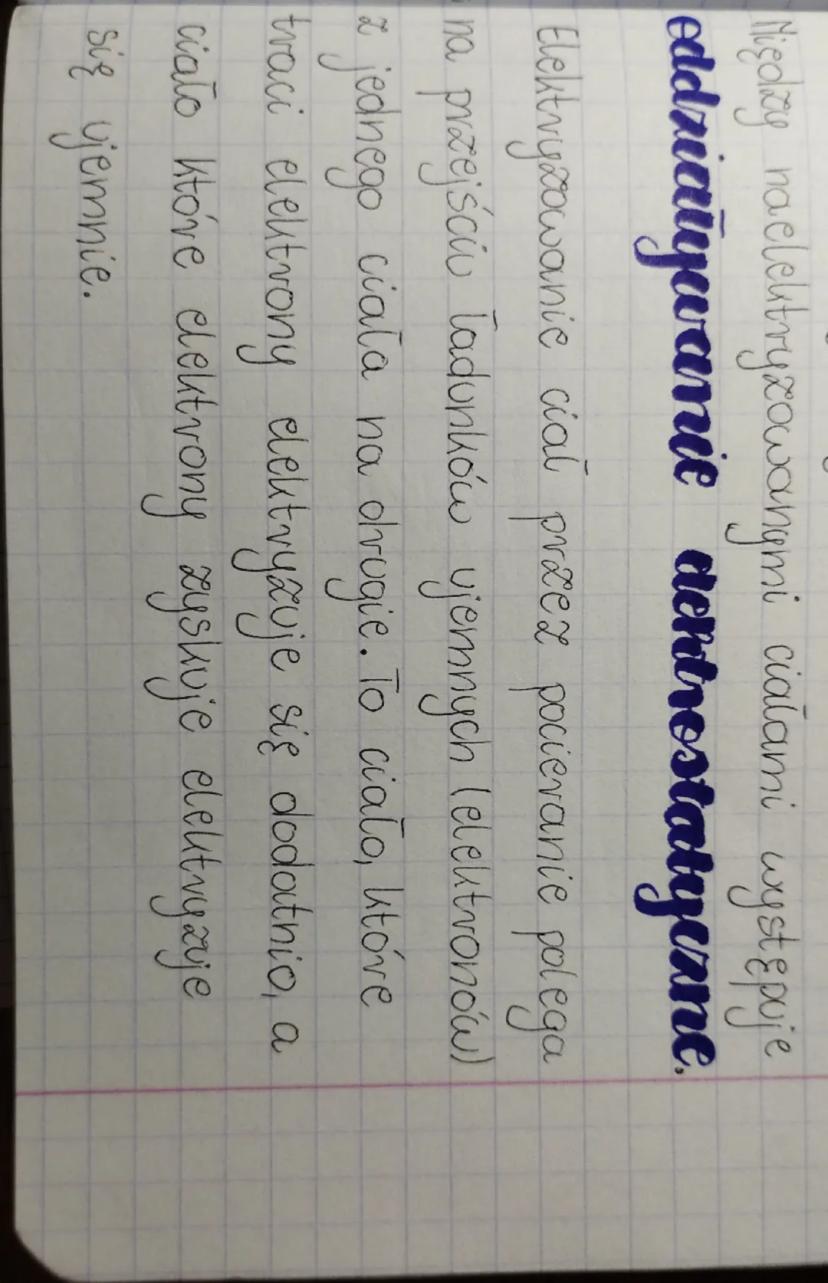 Między naelektryzowanymi ciałami występuje
oddziaływanie elektrostatyczne.
Elektryzowanie ciał przez pocieranie polega
na przejściu ładunków ujemnych (elektronów)
z jednego ciała na drugie. To ciało, które
traci elektrony elektryzuje się dodatnio, a
ciało które elektrony zyskuje elektryzuje
się ujemnie.